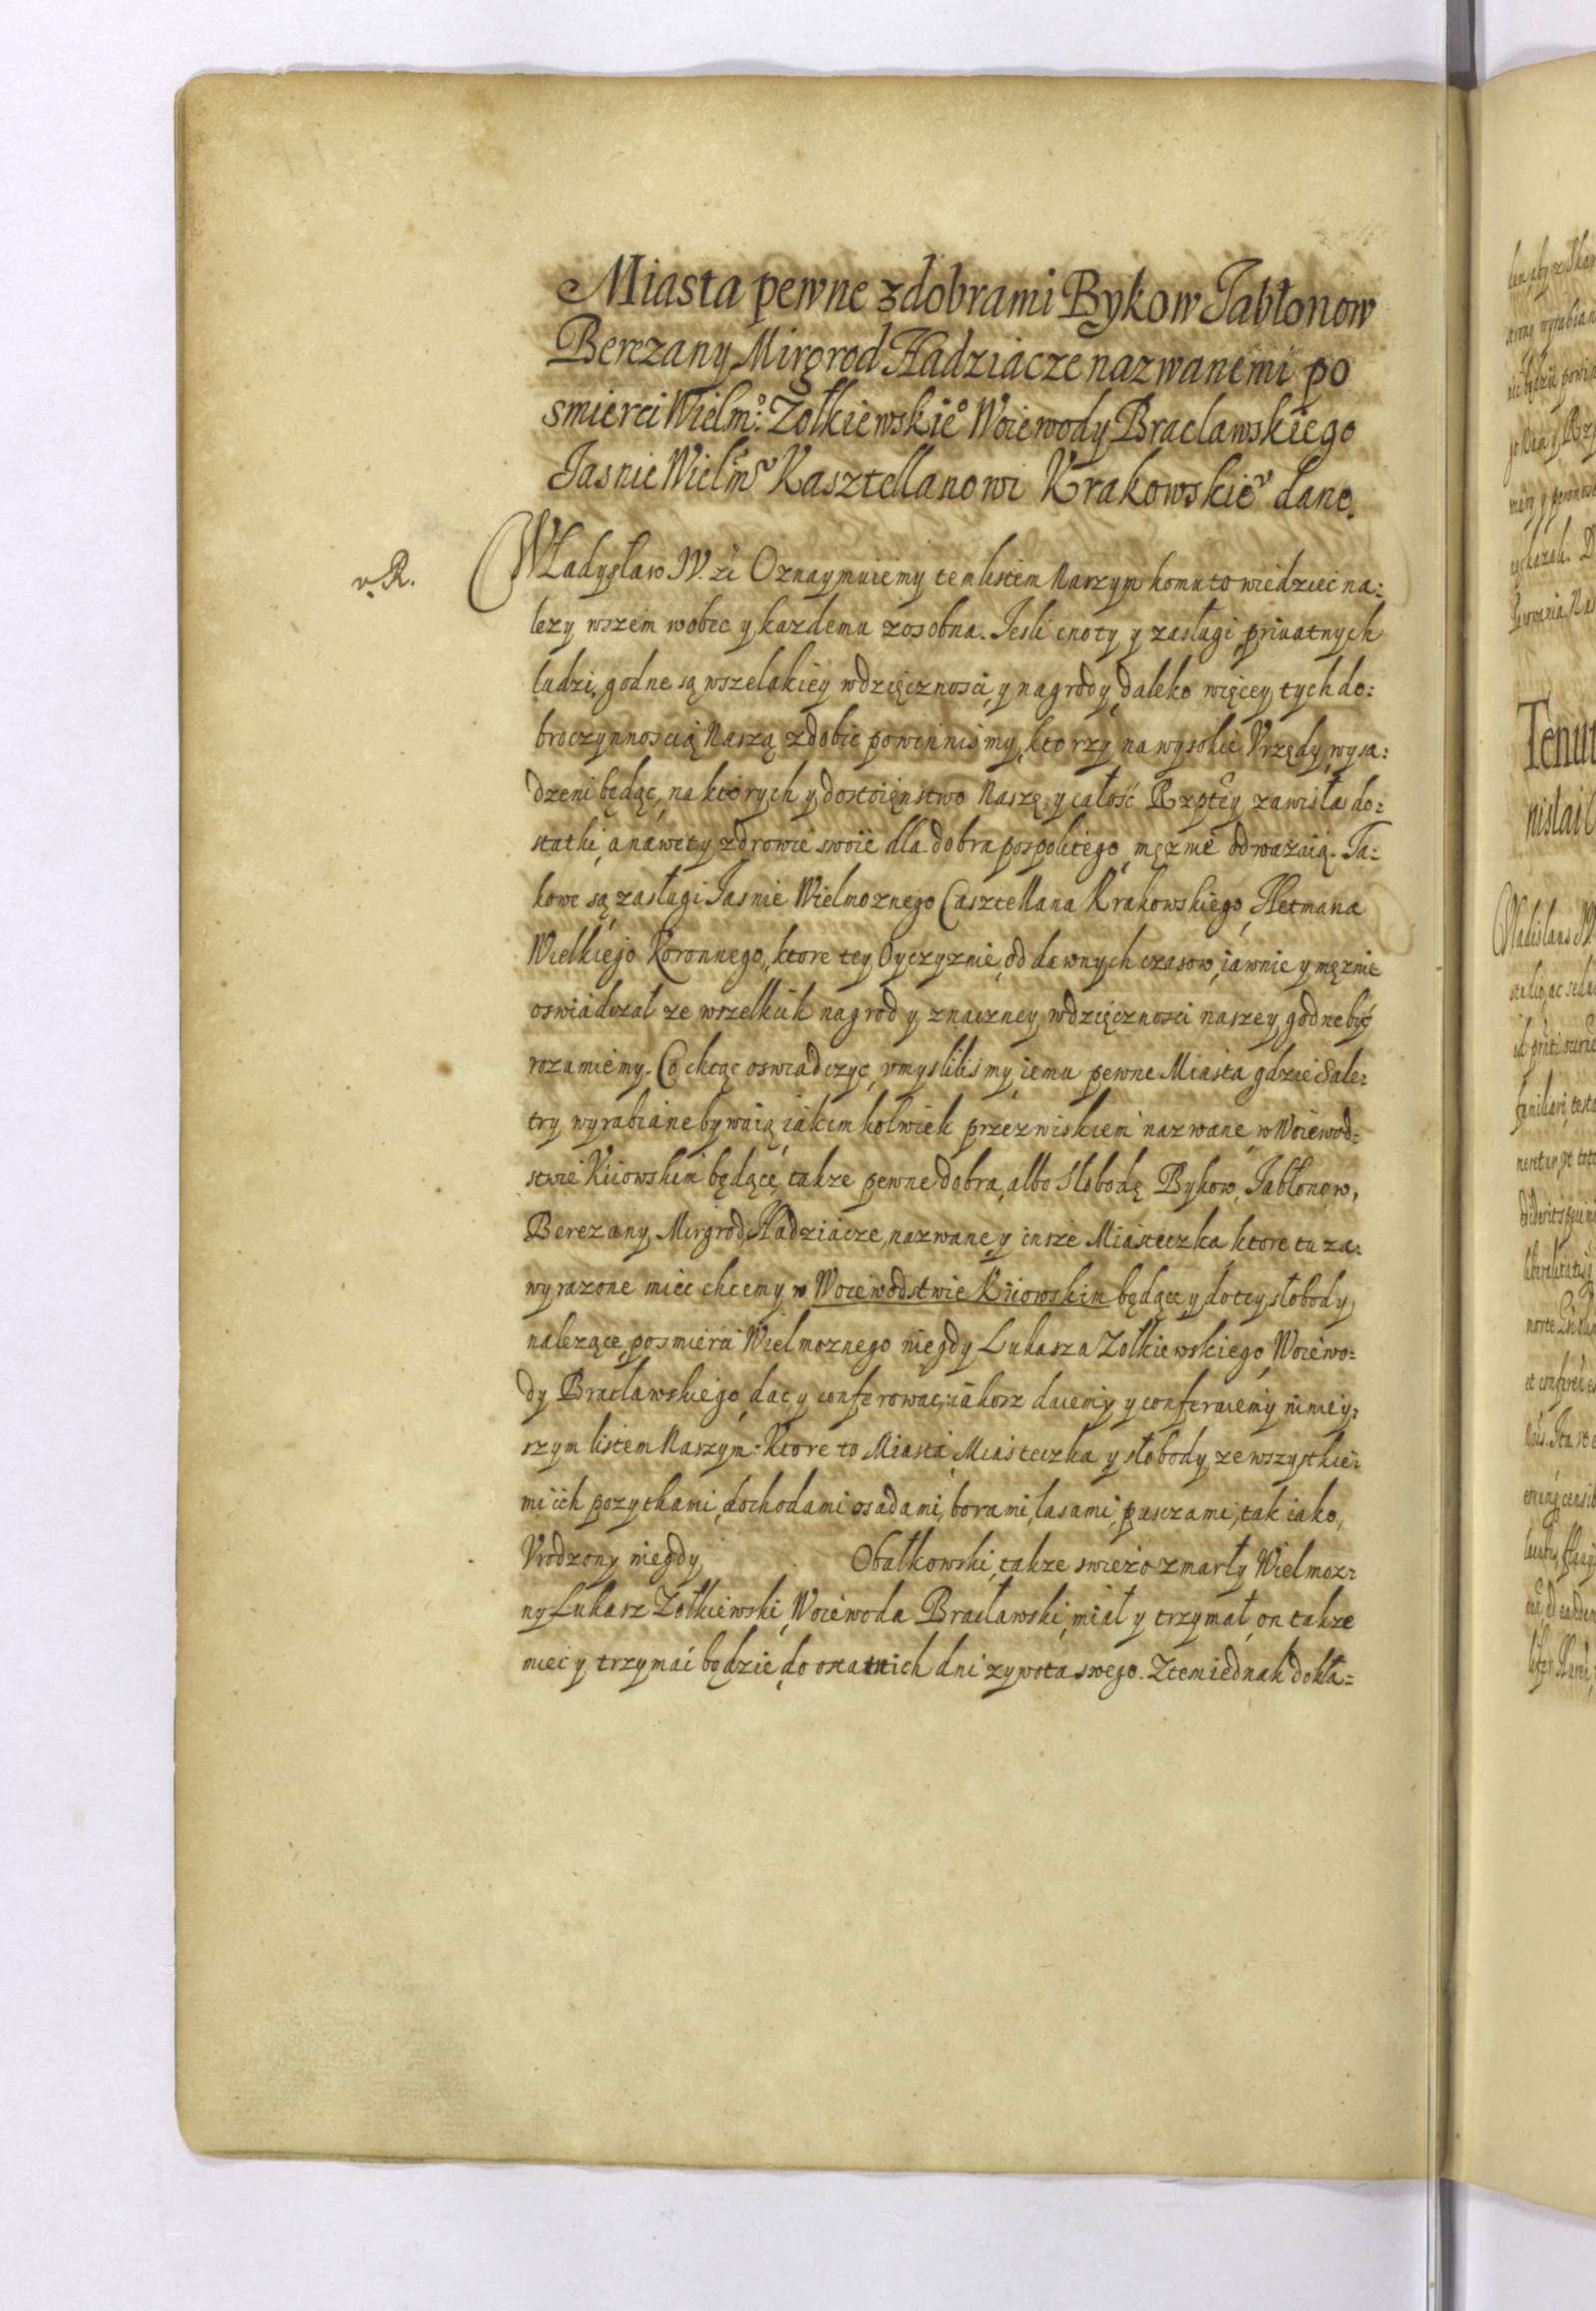 Miasta pewne z dobrami Bykow Jabłonow
Berezany Mirgrod Hadziacze nazwanemi po
smierci Wielmº: Zołkiewskieº Woiewody Braclawskiego
Jasnie Wielmᵘ Kasztellanowi Krakowskieᵘ dane.
v. R.
Władysław IV. &c Oznaymuiemy tem listem Naszym komu to wiedziec na:
lezy wszem wobec y kazdemu zosobna. Jesli cnoty y zasługi priuatnych
ludzi, godne są wszelakiey wdzięcznosci, y nagrody, daleko więcey tych do:
broczynnoscią Naszą zdobic powinnismy, ktorzy na wysokie Vrzędy wysa:
dzeni będąc, na ktorych y dostoięnstwo Naszę, y całość Rzptey zawisła do:
statki, a nawety zdrowie swoie dla dobra pospolitego, męznie odwazaią. Ta:
kowe są zasługi Jasnie Wielmoznego Casztellana Krakowskiego, Hetmana
Wielkiego Koronnego, ktore tey Oyczyznie, od dawnych czasow, iawnie y męznie
oswiadczał ze wszelkich nagrod y znaczney wdzięcznosci naszey, godne być
rozumiemy. Co chcąc oswiadczyc, vmyslilismy, iemu pewne Miasta gdzie Sale:
try wyrabiane bywaią, iakimkolwiek przezwiskiem nazwane, w Woiewod:
stwie Kiiowskim będące, takze pewne dobra, albo Słobodę Bykow, Jabłonow,
Berezany, Mirgrod, Hadziacze, nazwane, y insze Miasteczka ktore tu za:
wyrazone miec chcemy w Woiewodstwie Kiiowskim będące y do tey słobody
nalezące, po smierci Wielmoznego niegdy Lukasza Zołkiewskiego, Woiewo:
dy Bracławskiego, dac y conferowac, iakosz daiemy y conferuiemy ninięy:
szym listem Naszym: Ktore to Miasta Miasteczka y słobody, ze wszystkie:
mi ich pozytkami, dochodami osadami, borami, lasami, puszczami, tak iako,
Vrodzony niegdy Obałkowski, takze swiezo zmarły Wielmoz:
ny Lukasz Zołkiewski, Woiewoda Bracławski, miał y trzymał, on takze
miec y trzymać będzie, do ostatnich dni zywota swego. Z tem iednak dokła: